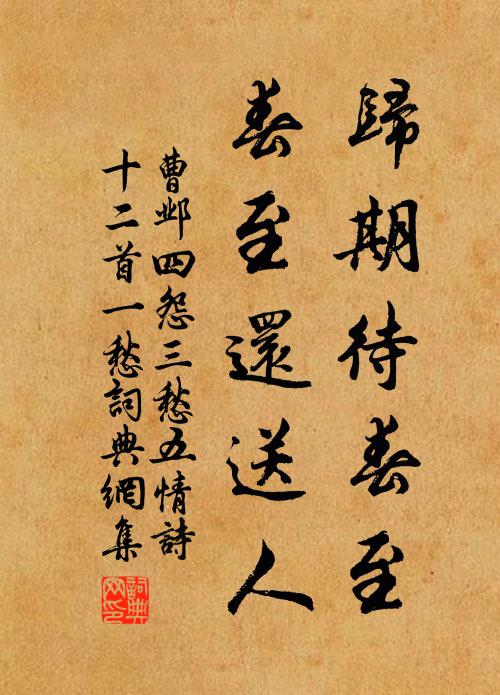 歸期待春至
春至還送人
曹邺四怨三愁五情詩
十二首一愁詞典網集
詞典网印